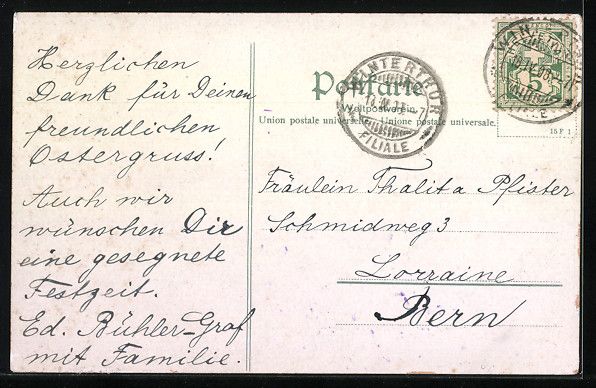 Herzlichen
Dank für Deinen
freundlichen
Ostergruss!
Auch wir
wünschen Dir
eine gesegnete
Festzeit.
Ed. Bühler-Graf
mit Familie.
Postkarte
Weltpostverein
Union postale universelle. Unione postale universale.
WINTERTHUR
FILIALE
15 F 1
Fräulein Thalita Pfister
Schmidweg 3
Lorraine
Bern